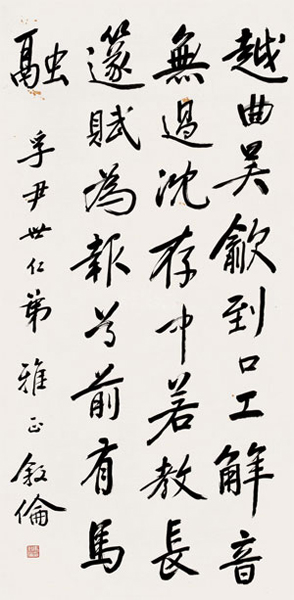 越曲吴歈到口工解音
無過沈存中若教長
篴賦為報尊前有馬
融
孚尹世仁弟雅正叙倫